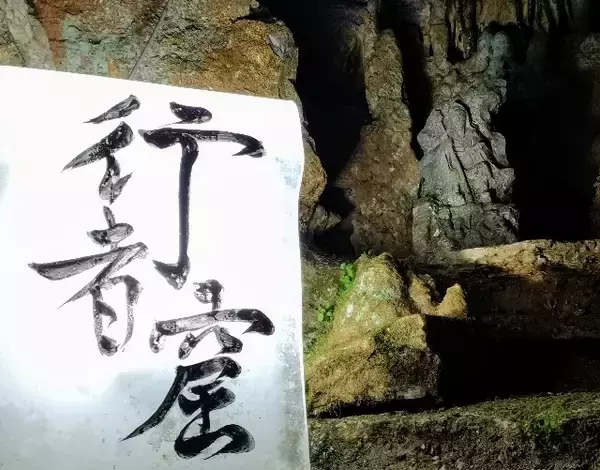 行
者窟